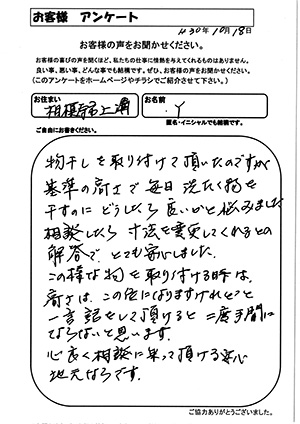 お客様 アンケート
H30年10月18日
お客様の声をお聞かせください。
お客様の喜びの声を聞くほど、私たちの仕事に情熱を与えてくれるものはありません。
良い事、悪い事、どんな事でも結構です。ぜひ、お客様の声をお聞かせください。
(このアンケートをホームページやチラシでご紹介させて下さい。)
お住まい
相模原市上溝
お名前
Y
匿名・イニシャルでも結構です。
ご自由にお書きください。
物干しを取り付けて頂いたのですが
基準の高さで毎日洗たく物を
干すのにどうしたら良いかと悩みました
相談したら寸法を変更してくれるとの
解答でとても安心しました。
この様な物を取り付ける時は
高さは、この位になりますけれどと
一言話をして頂けると二度手間に
ならないと思います。
心良く相談に乗って頂ける安心
地元ならです。
ご協力ありがとうございました。